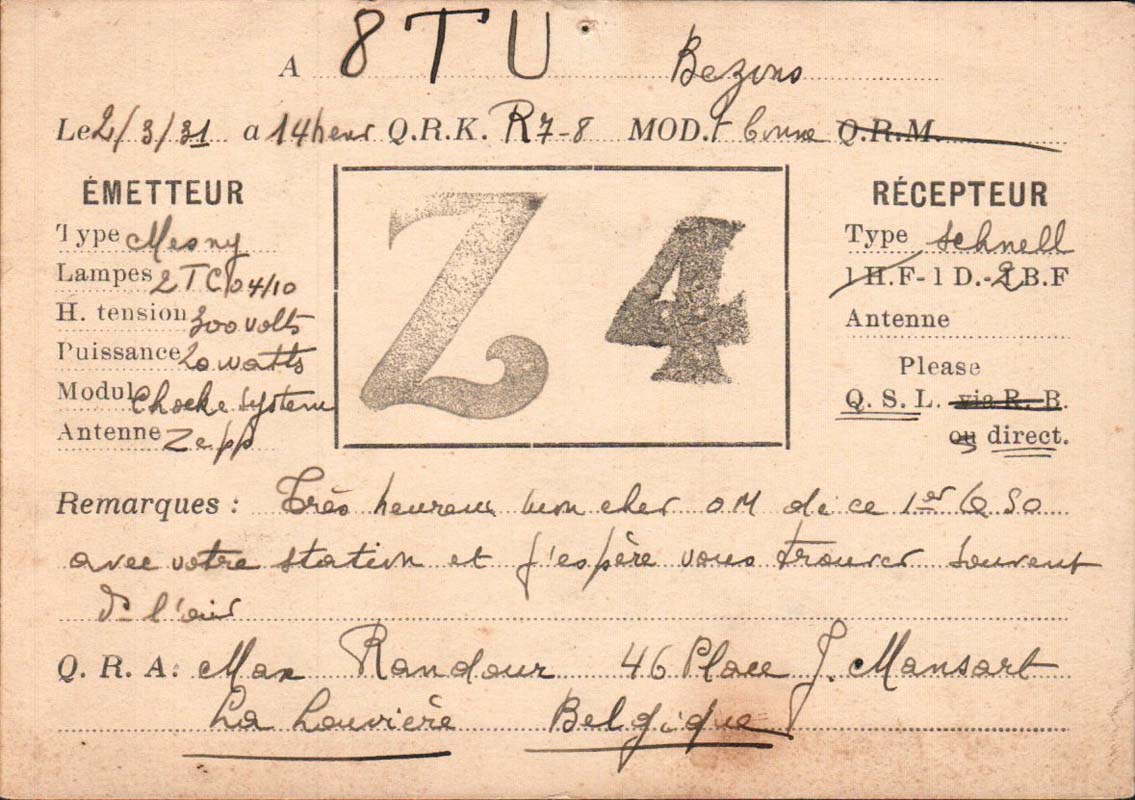 A 8TU Bezons
Le 2/3/31 a 14 heur Q.R.K. R7-8 MOD. bonne Q.R.M.
ÉMETTEUR
Type Mesny
Lampes 2 TC 04/10
H. tension 300 volts
Puissance 20 watts
Modul Choke System
Antenne Zepp
Z 4
RÉCEPTEUR
Type Schnell
1 H.F - 1 D. - 2 B.F
Antenne
Please
Q. S. L. via R. B.
ou direct.
Remarques : Très heureux mon cher OM de ce 1er QSO
avec votre station et j'espère vous trouver souvent
l'air
Q. R. A: Max Randour 46 Place J. Mansart
La Louvière Belgique